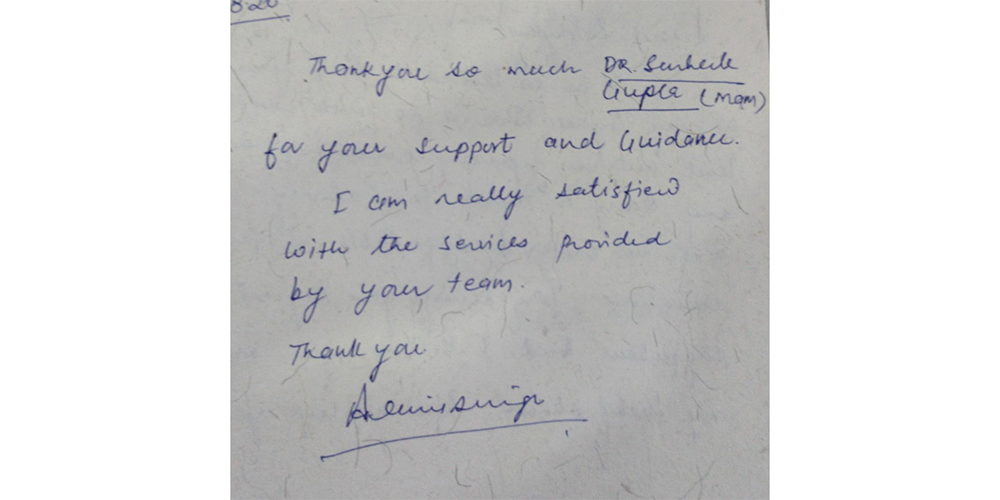 8.20
Thankyou so much DR. Surbhi
Gupta (Mam)
for your support and Guidance.
I am really satisfied
with the services provided
by your team.
Thank you